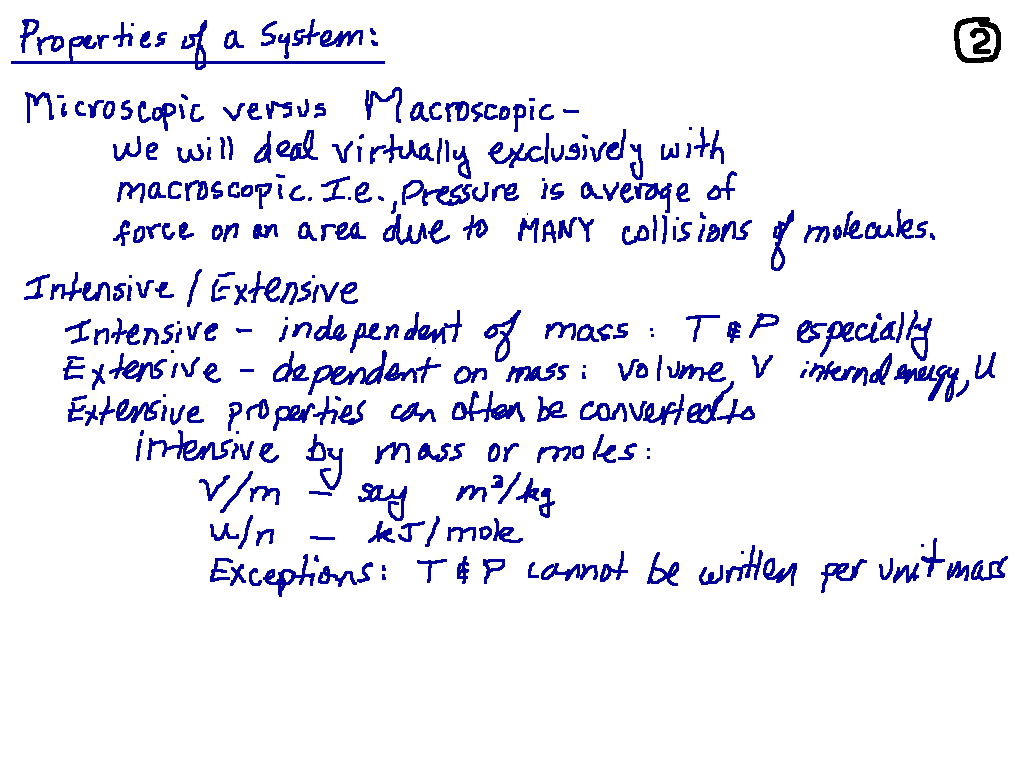 Properties of a System:
2
Microscopic versus Macroscopic -
We will deal virtually exclusively with
macroscopic. I.e., Pressure is average of
force on an area due to MANY collisions of molecules.
Intensive / Extensive
Intensive - independent of mass: T & P especially
Extensive - dependent on mass: volume, V internal energy, U
Extensive properties can often be converted to
intensive by mass or moles:
V/m - say m³/kg
U/n - kJ/mole
Exceptions: T & P cannot be written per unit mass